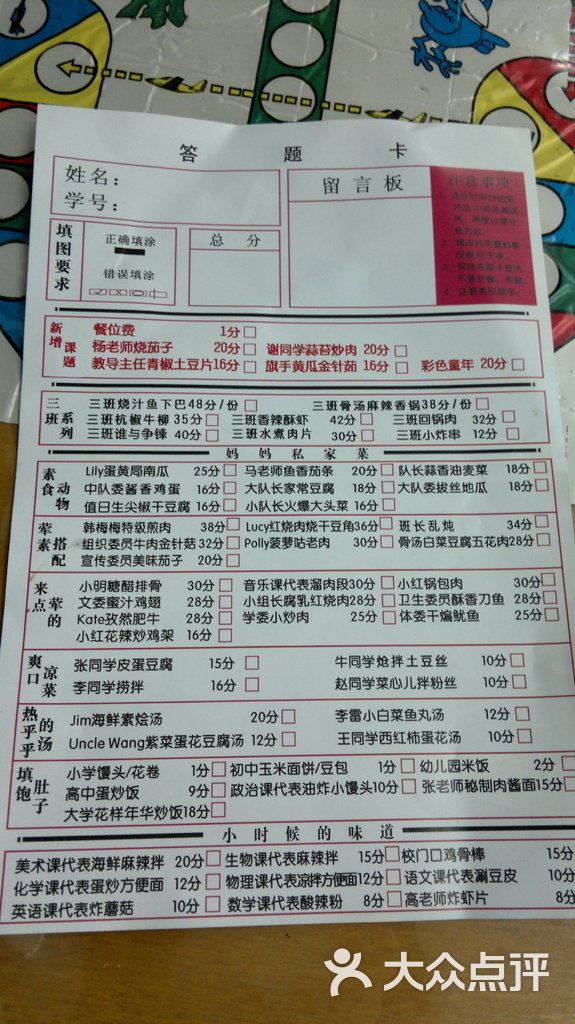 答 题 卡
姓名：
学号：
留言板
注意事项
填图要求
正确填涂
错误填涂
总分
新增课题
餐位费 1分
杨老师烧茄子 20分 谢同学蒜苔炒肉 20分
教导主任青椒土豆片16分 旗手黄瓜金针茹 16分 彩色童年 20分
三班系列
三班烧汁鱼下巴48分/份 三班骨汤麻辣香锅38分/份
三班杭椒牛柳 35分 三班香辣酥虾 42分 三班回锅肉 32分
三班谁与争锋 40分 三班水煮肉片 30分 三班小炸串 12分
妈妈私家菜
素食动物
Lily蛋黄局南瓜 25分 马老师鱼香茄条 20分 队长蒜香油麦菜 18分
中队委酱香鸡蛋 16分 大队长家常豆腐 18分 大队委拔丝地瓜 18分
值日生尖椒干豆腐 16分 小队长火爆大头菜 16分
荤素搭配
韩梅梅特级煎肉 38分 Lucy红烧肉烧干豆角36分 班长乱炖 34分
组织委员牛肉金针菇32分 Polly菠萝咕老肉 30分 骨汤白菜豆腐五花肉28分
宣传委员美味茄子 20分
来点荤的
小明糖醋排骨 30分 音乐课代表溜肉段30分 小红锅包肉 30分
文委蜜汁鸡翅 28分 小组长腐乳红烧肉28分 卫生委员酥香刀鱼 28分
Kate孜然肥牛 28分 学委小炒肉 25分 体委干煸鱿鱼 25分
小红花辣炒鸡架 16分
爽口凉菜
张同学皮蛋豆腐 15分 牛同学炝拌土豆丝 10分
李同学捞拌 16分 赵同学菜心儿拌粉丝 10分
热乎乎的汤
Jim海鲜素烩汤 20分 李雷小白菜鱼丸汤 12分
Uncle Wang紫菜蛋花豆腐汤 12分 王同学西红柿蛋花汤 10分
填饱肚子
小学馒头/花卷 1分 初中玉米面饼/豆包 1分 幼儿园米饭 2分
高中蛋炒饭 9分 政治课代表油炸小馒头10分 张老师秘制肉酱面15分
大学花样年华炒饭18分
小时候的味道
美术课代表海鲜麻辣拌 20分 生物课代表麻辣拌 15分 校门口鸡骨棒 15分
化学课代表蛋炒方便面 12分 物理课代表凉拌方便面12分 语文课代表涮豆皮 10分
英语课代表炸蘑菇 10分 数学课代表酸辣粉 8分 高老师炸虾片 8分
大众点评